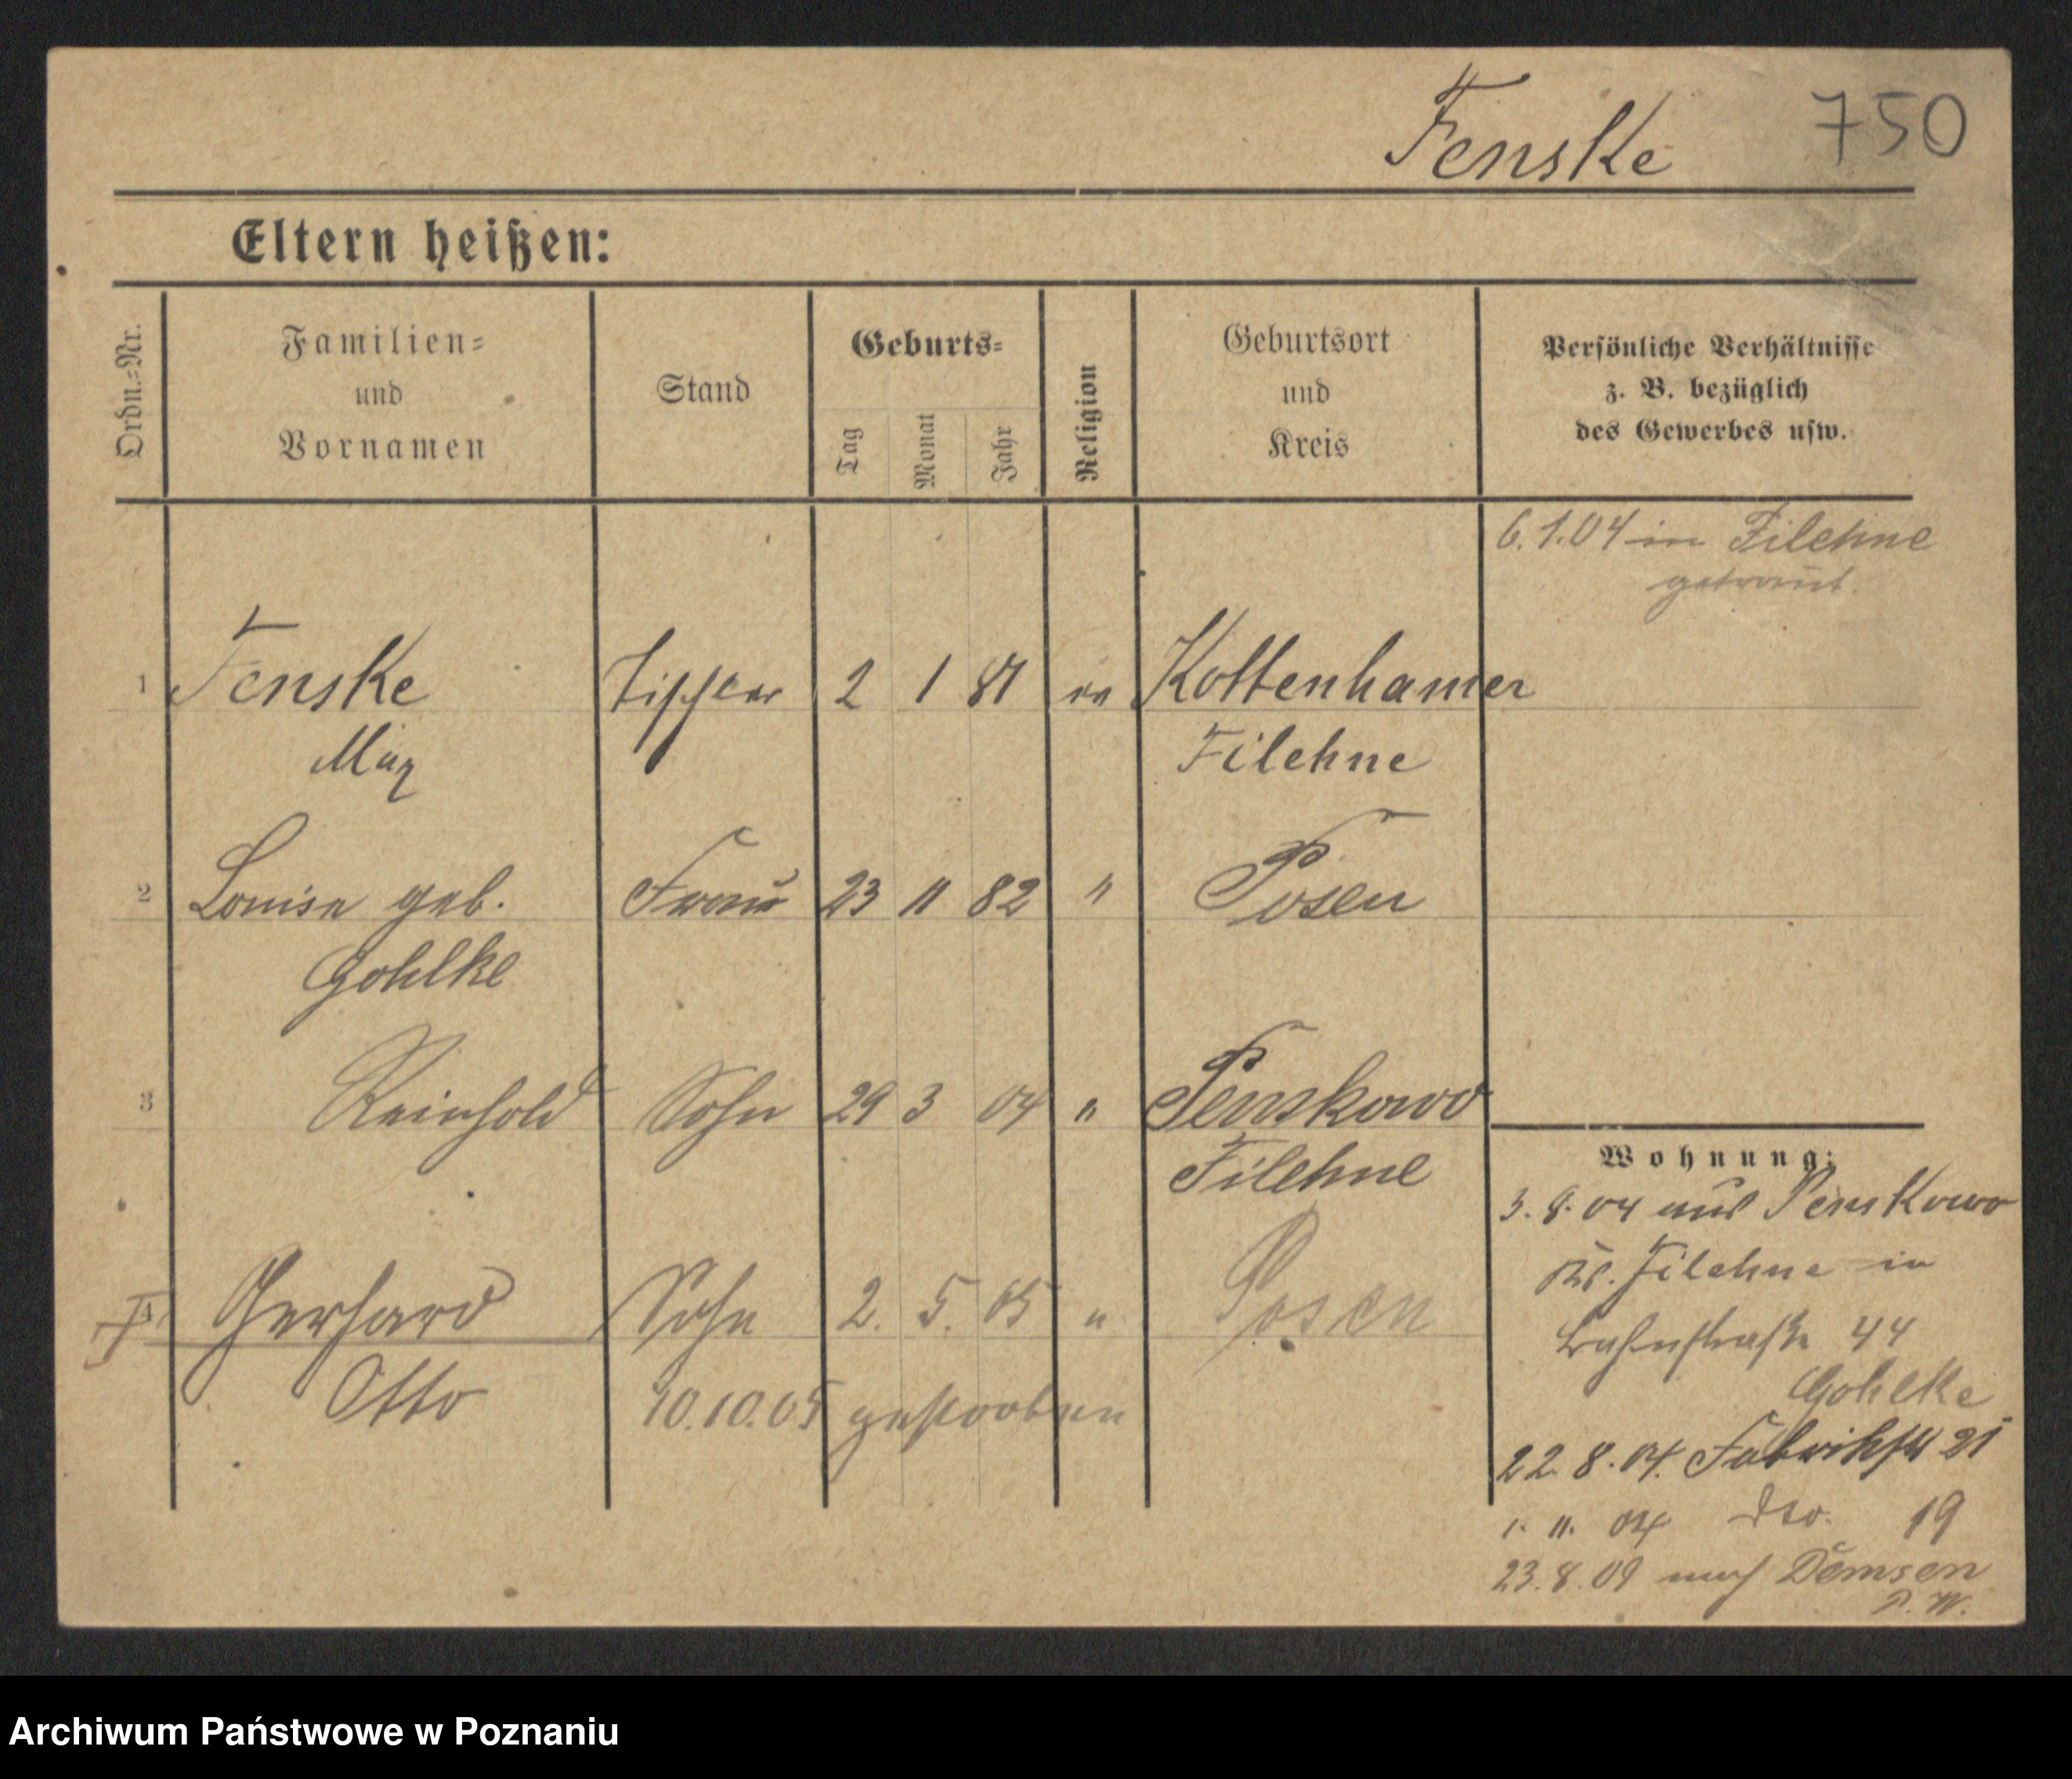 Fenske 750
Eltern heißen:
Ordn.=Nr.
Familien=
und
Vornamen
Stand
Geburts=
Tag
Monat
Jahr
Religion
Geburtsort
und
Kreis
Persönliche Verhältnisse
z. B. bezüglich
des Gewerbes usw.
6. 1. 04 in Filehne
getraut.
1 Fenske Tischler 2 1 81 ev Kottenhamer
Max Filehne
2 Louise geb. Frau 23 11 82 " Posen
Gohlke
3 Reinhold Sohn 29 3 04 " Penskowo
Filehne
4 Gerhard Sohn 2. 5. 05 " Posen
Otto 10.10.05 gestorben
Wohnung:
3. 8. 04 aus Penskowo
Kr. Filehne in
Bahnstraße 44
Gohlke
22. 8. 04. Fabrikstr 21
1. 11. 04 dto. 19
23. 8. 09 nach Demsen
P. W.
Archiwum Państwowe w Poznaniu